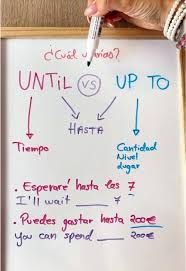 ¿Cuál usarías?
UNTIL VS UP TO
HASTA
Tiempo
Cantidad
Nivel
Lugar
. Esperaré hasta las 7
I'll wait ___ 7
. Puedes gastar hasta 200€
you can spend ___ 200€